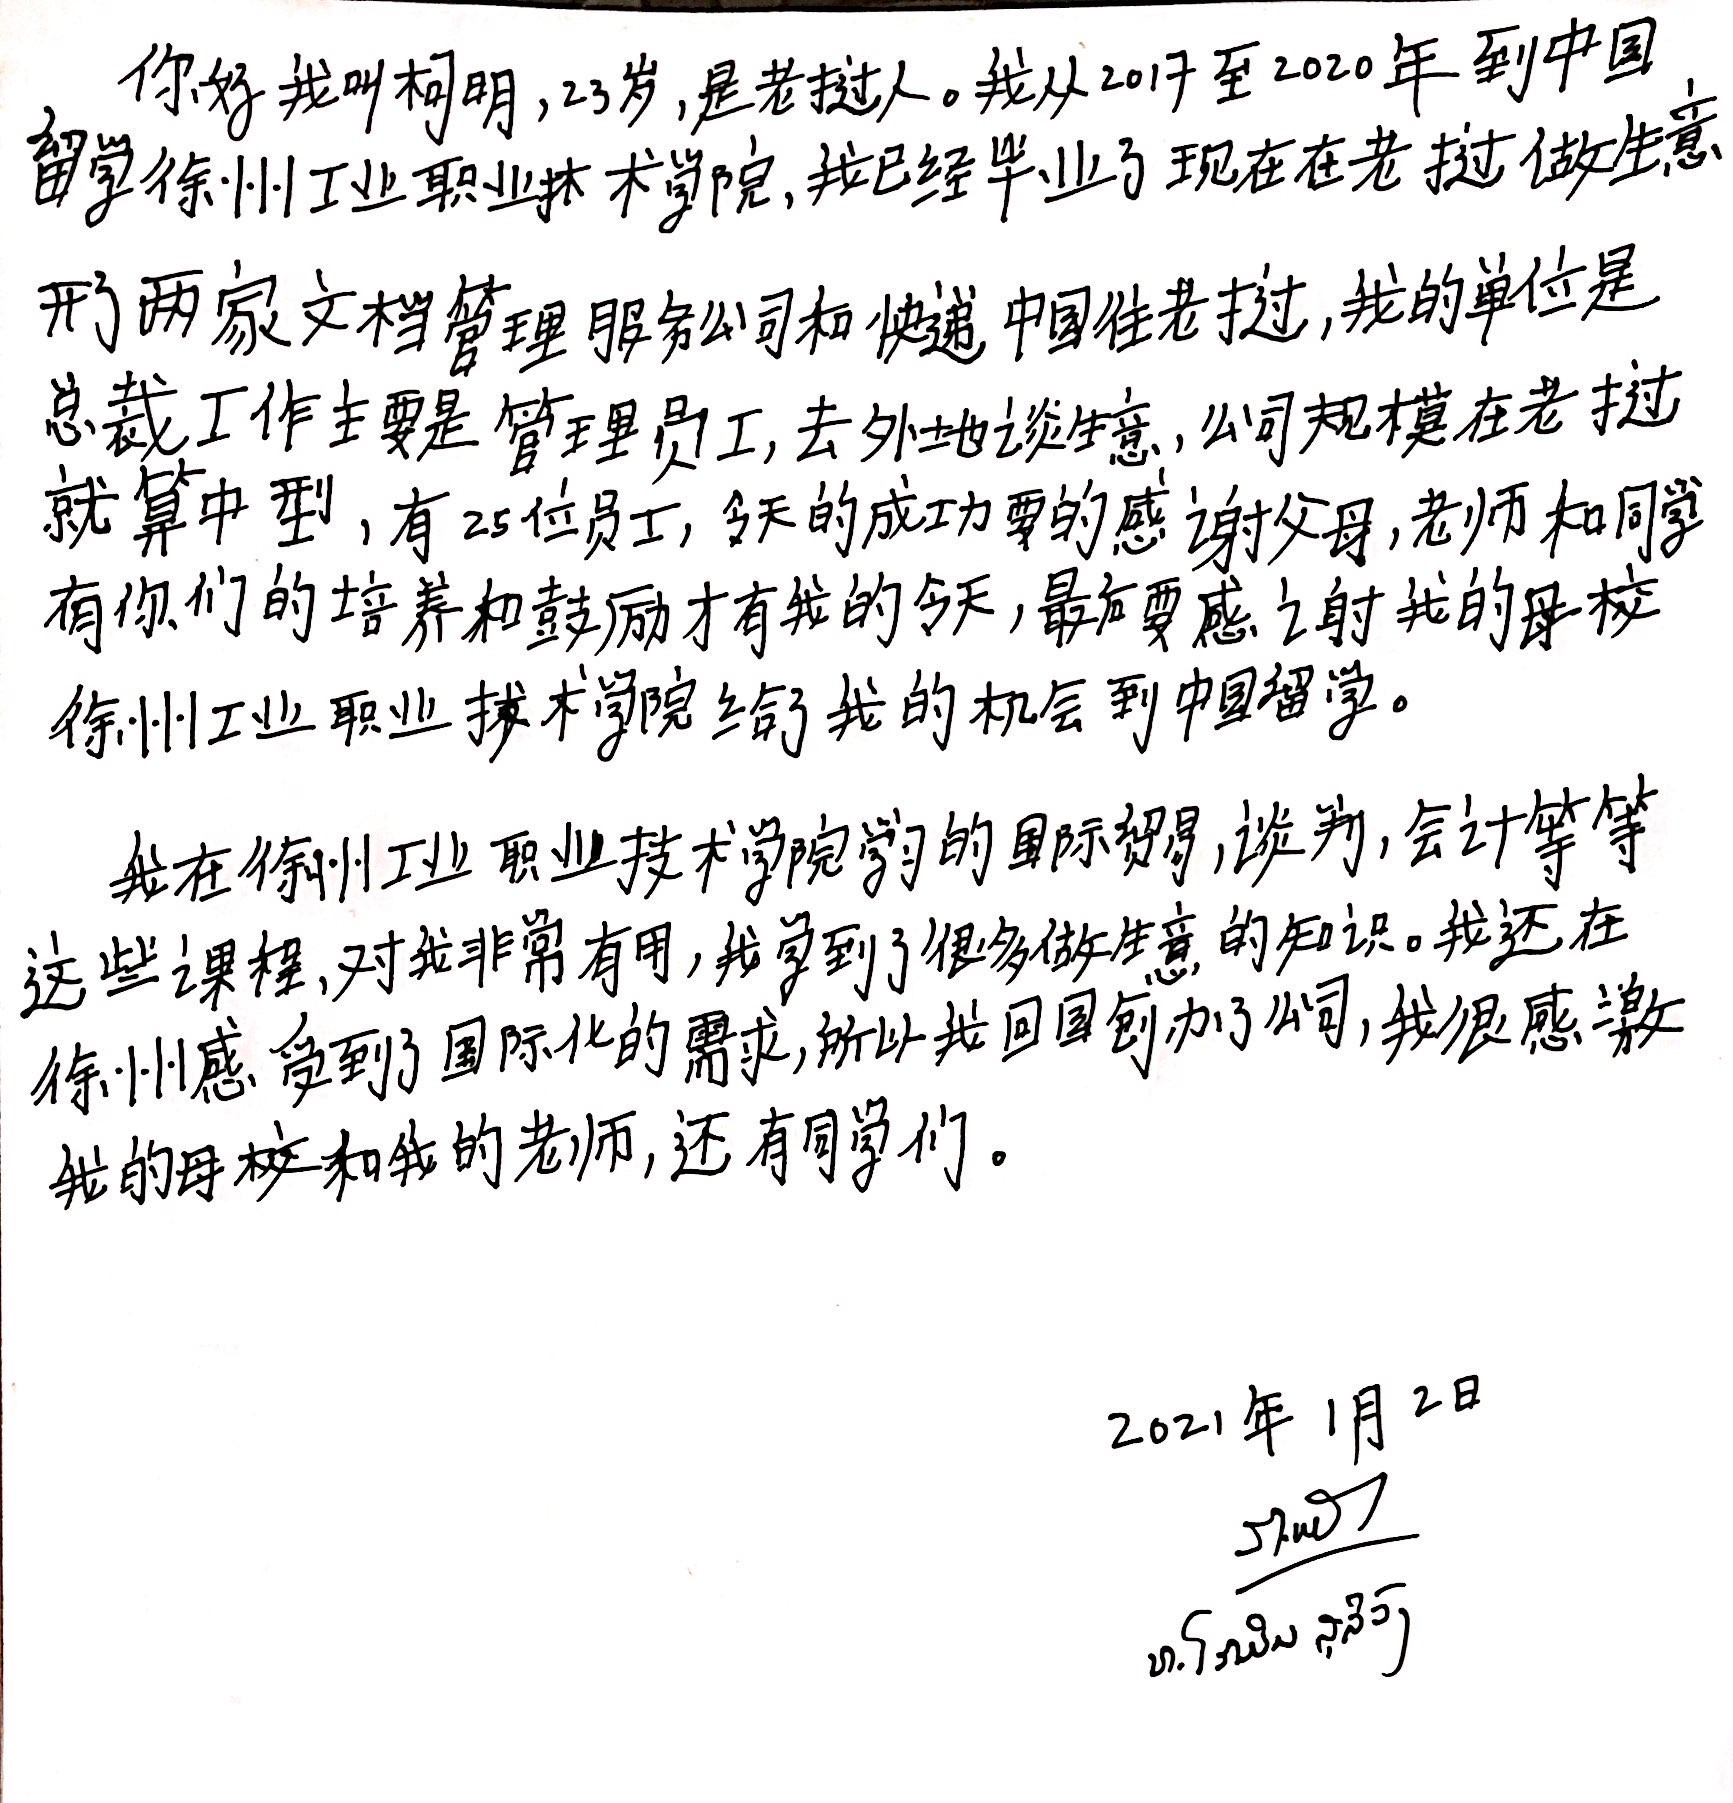 你好我叫柯明,23岁,是老挝人。我从2017至2020年到中国
留学徐州工业职业技术学院,我已经毕业了现在在老挝做生意,
开了两家文档管理服务公司和快递中国往老挝,我的单位是
总裁工作主要是管理员工,去外地谈生意,公司规模在老挝
就算中型,有25位员工,今天的成功要的感谢父母,老师和同学
有你们的培养和鼓励才有我的今天,最后要感谢我的母校
徐州工业职业技术学院给了我的机会到中国留学。
我在徐州工业职业技术学院学习的国际贸易,谈判,会计等等
这些课程,对我非常有用,我学到了很多做生意的知识。我还在
徐州感受到了国际化的需求,所以我回国创办了公司,我很感激
我的母校和我的老师,还有同学们。
2021年1月2日